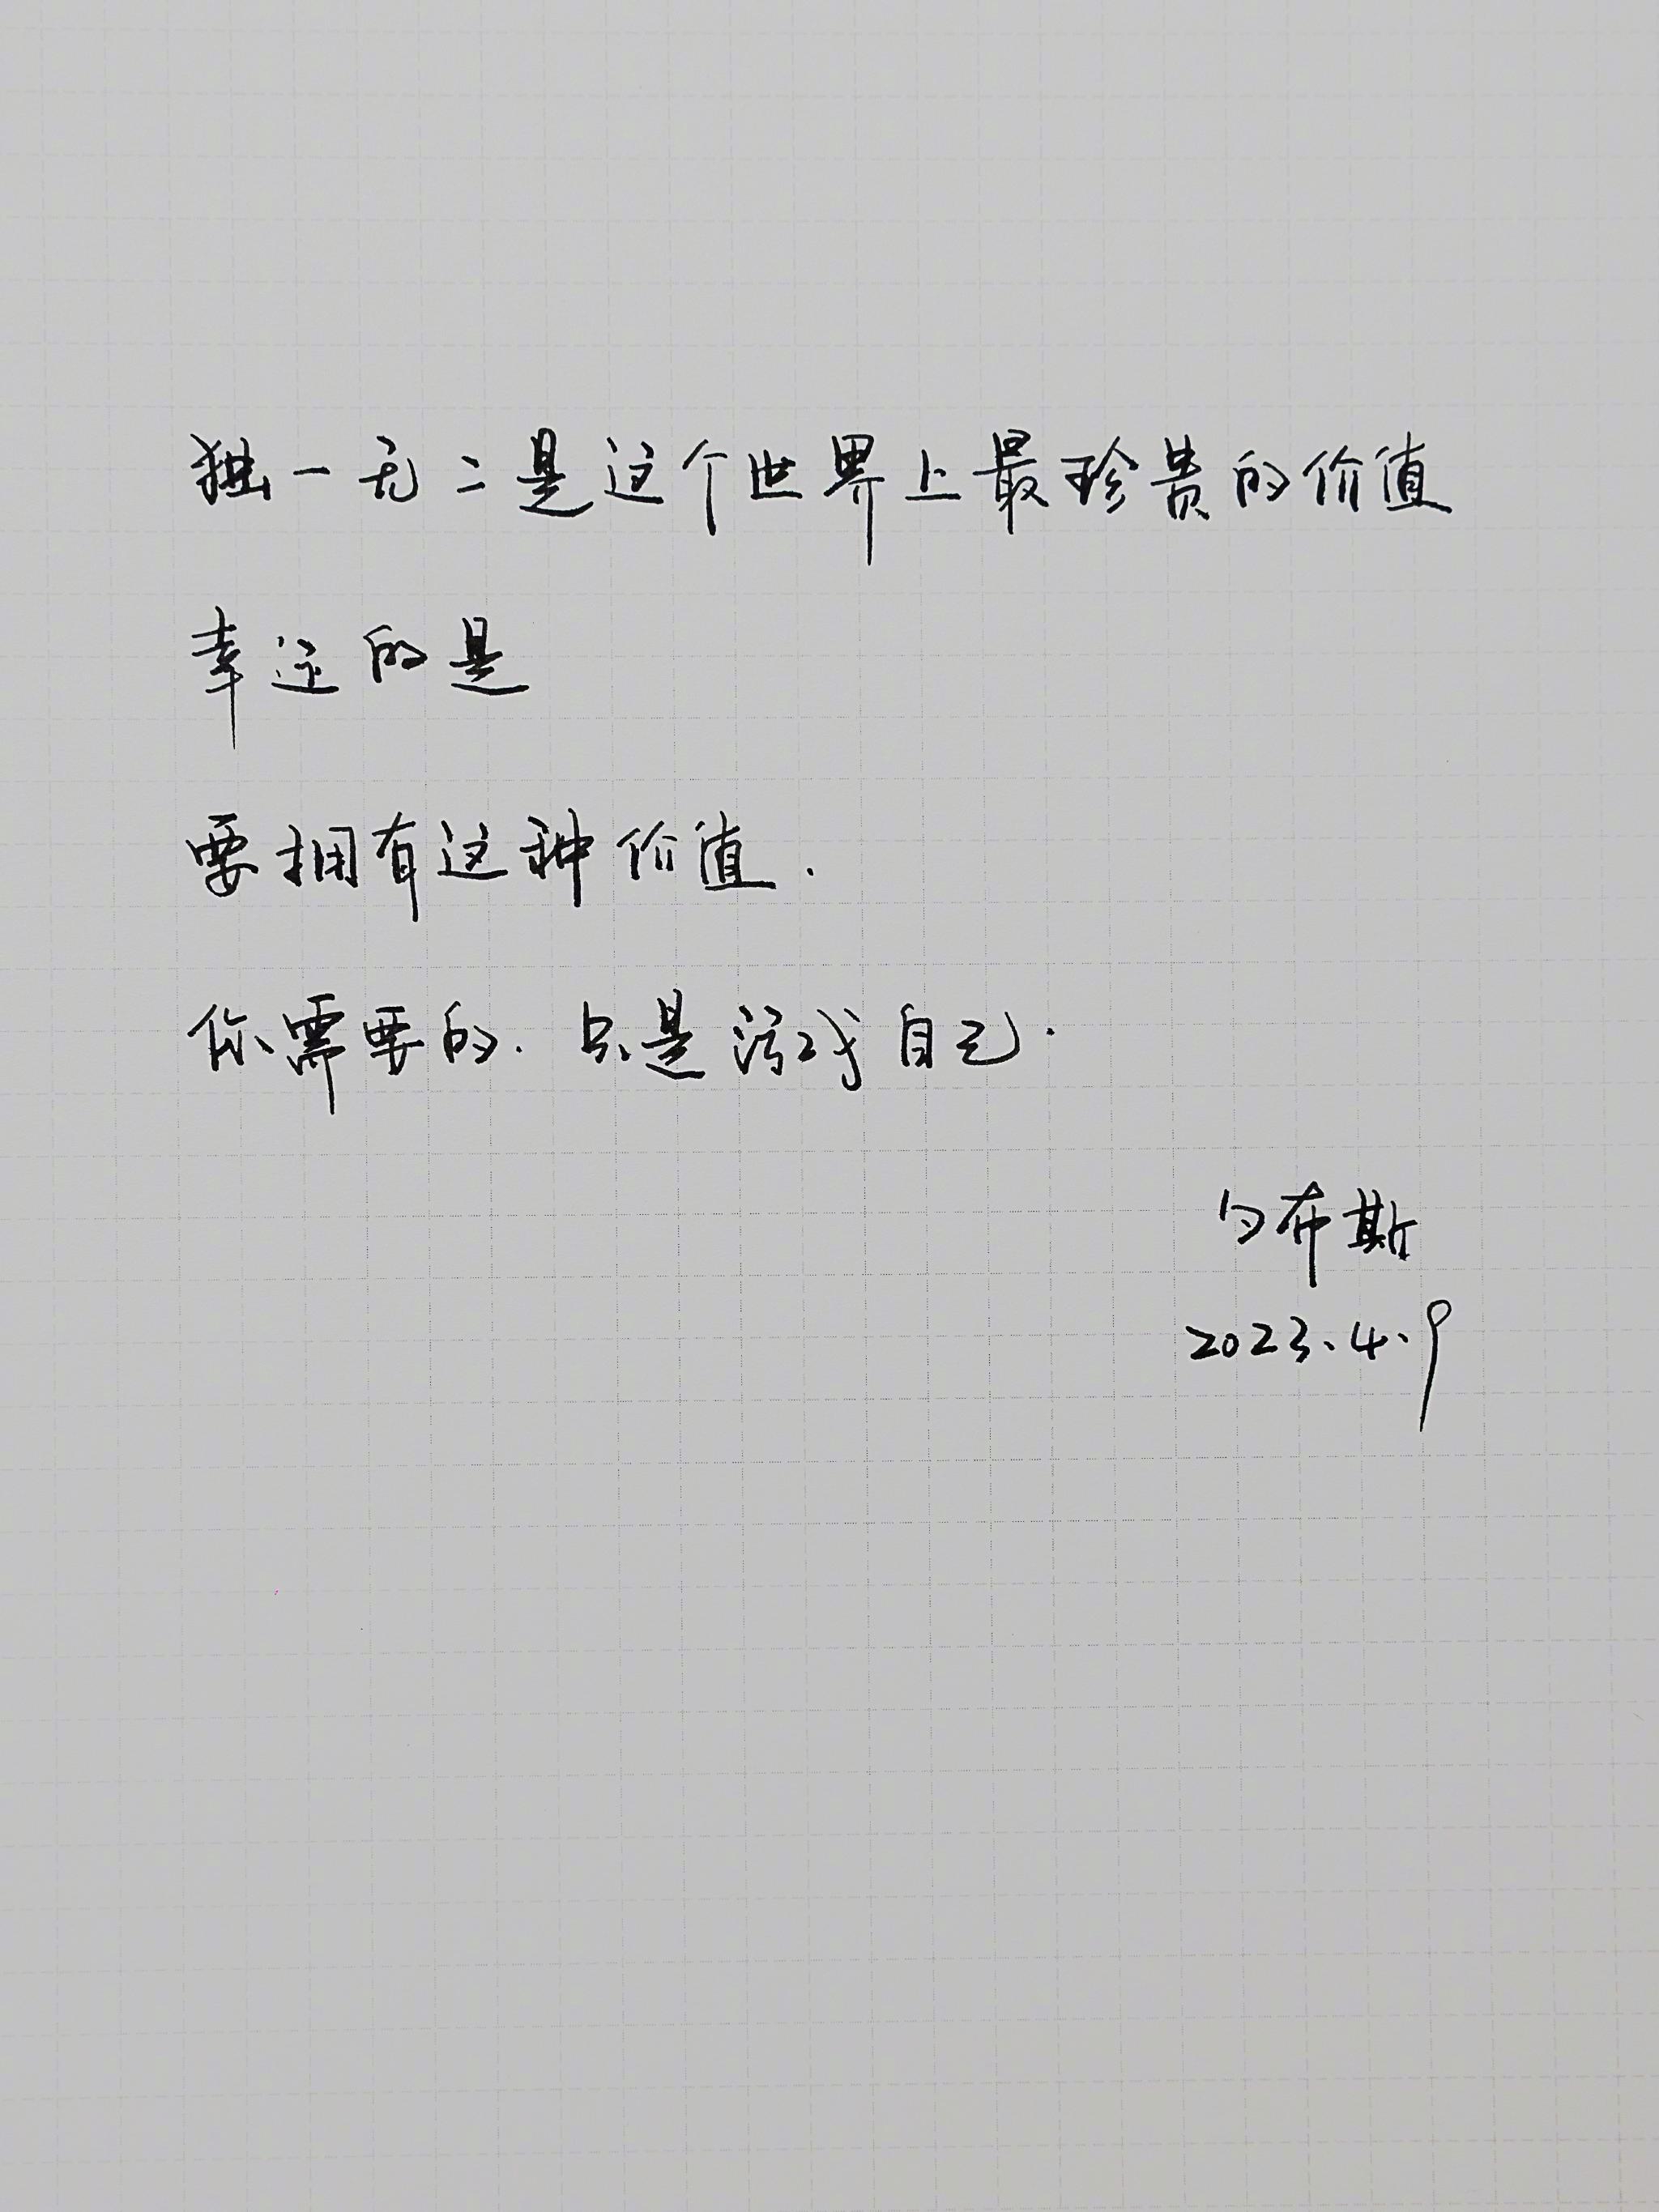 独一无二是这个世界上最珍贵的价值
幸运的是
要拥有这种价值.
你需要的.只是活成自己.
白布斯
2023.4.9